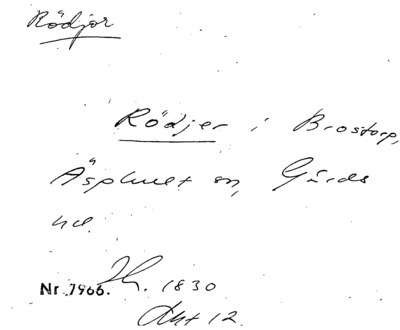 Rödjor
Rödjer i Brostorp,
Äsphult sn, Gärds
hd.
Nr 7966. 1830
Akt 12.